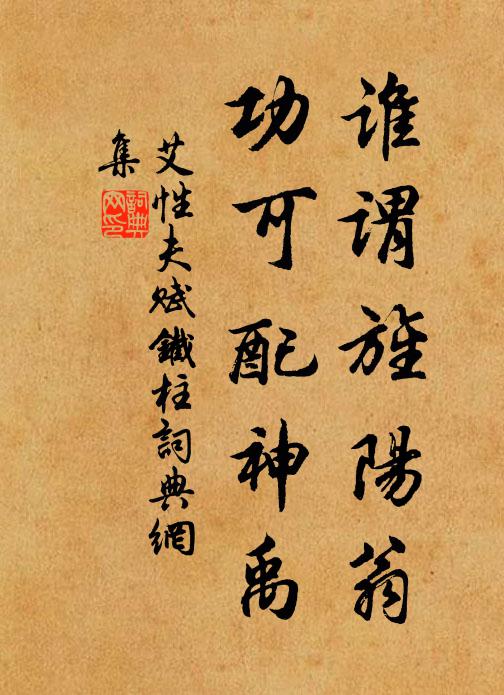 誰謂旌陽翁
功可配神禹
艾性夫賦鐵柱詞典網
集
詞典網印